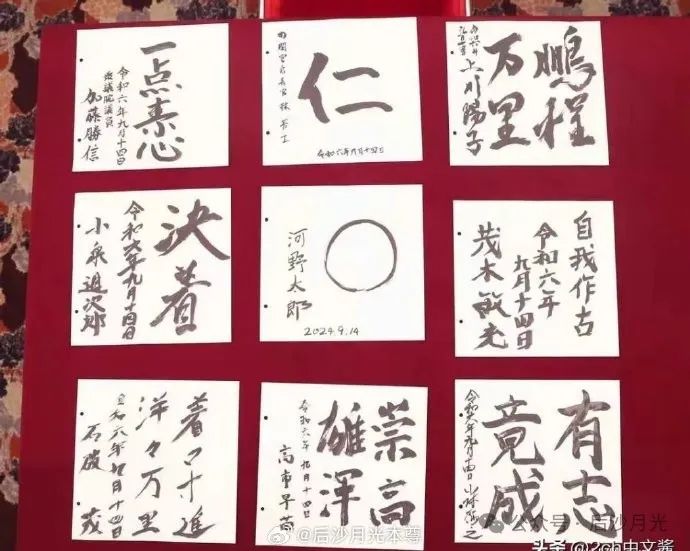 一点素心
令和六年九月十四日
衆議院議員
加藤勝信
仁
内閣官房長官 林芳正
令和六年九月十四日
鵬程
万里
上川陽子
決着
令和六年九月十四日
小泉進次郎
河野太郎
2024.9.14
自我作古
令和六年
九月十四日
茂木敏充
着々寸進
洋々万里
令和六年九月十四日
石破茂
崇高
雄渾
令和六年九月十四日
高市早苗
有志
竟成
令和六年九月十四日 小林鷹之
@后沙月光本尊
公众号·后沙月光
头条 @2ch中文酱